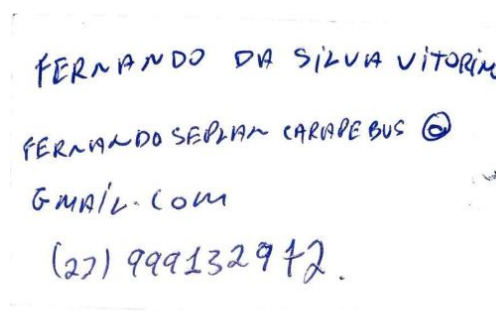 FERNANDO DA SILVA VITORINO
FERNANDO SEPLAN CARAPEBUS @
GMAIL.COM
(22) 999132972.